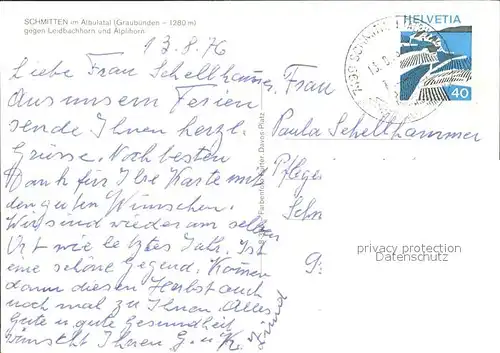 SCHMITTEN im Albulatal (Graubünden – 1280 m)
gegen Leidbachhorn und Älplihorn
13.8.76
HELVETIA
40
Liebe Frau Schellhammer,
Aus unsern Ferien
sende Ihnen herzl.
Grüsse. Noch besten
Dank für Ihre Karte mit
den guten Wünschen.
Wir sind wieder am selben
Ort wie letztes Jahr. Ist
eine schöne Gegend. Kommen
dann diesen Herbst auch
noch mal zu Ihnen. Alles
Gute u. gute Gesundheit
wünscht Ihnen G. u. K.
Frau
Paula Schellhammer
Pflege
Schn
privacy protection
Datenschutz
Davos-Platz